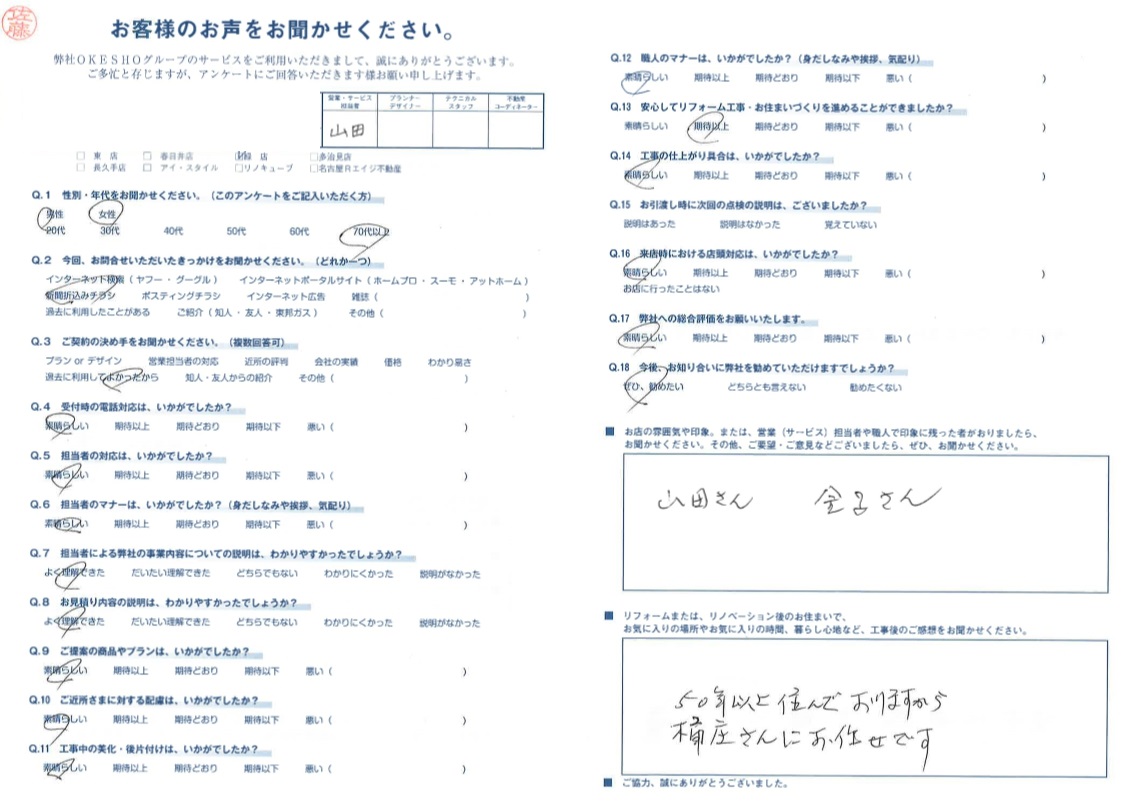 佐藤
お客様のお声をお聞かせください。
弊社OKESHOグループのサービスをご利用いただきまして、誠にありがとうございます。
ご多忙と存じますが、アンケートにご回答いただきます様お願い申し上げます。
営業・サービス担当者 プランナーデザイナー テクニカルスタッフ 不動産コーディネーター
山田
□ 東 店 □ 春日井店 店 □多治見店
□ 長久手店 □ アイ・スタイル □リノキューブ □名古屋Rエイジ不動産
Q.1 性別・年代をお聞かせください。(このアンケートをご記入いただく方)
男性 女性
20代 30代 40代 50代 60代 70代以上
Q.2 今回、お問合せいただいたきっかけをお聞かせください。(どれか一つ)
インターネット検索(ヤフー・グーグル) インターネットポータルサイト(ホームプロ・スーモ・アットホーム)
新聞折込みチラシ ポスティングチラシ インターネット広告 雑誌( )
過去に利用したことがある ご紹介(知人・友人・東邦ガス) その他( )
Q.3 ご契約の決め手をお聞かせください。(複数回答可)
プラン or デザイン 営業担当者の対応 近所の評判 会社の実績 価格 わかり易さ
過去に利用してよかったから 知人・友人からの紹介 その他( )
Q.4 受付時の電話対応は、いかがでしたか?
素晴らしい 期待以上 期待どおり 期待以下 悪い( )
Q.5 担当者の対応は、いかがでしたか?
素晴らしい 期待以上 期待どおり 期待以下 悪い( )
Q.6 担当者のマナーは、いかがでしたか?(身だしなみや挨拶、気配り)
素晴らしい 期待以上 期待どおり 期待以下 悪い( )
Q.7 担当者による弊社の事業内容についての説明は、わかりやすかったでしょうか?
よく理解できた だいたい理解できた どちらでもない わかりにくかった 説明がなかった
Q.8 お見積り内容の説明は、わかりやすかったでしょうか?
よく理解できた だいたい理解できた どちらでもない わかりにくかった 説明がなかった
Q.9 ご提案の商品やプランは、いかがでしたか?
素晴らしい 期待以上 期待どおり 期待以下 悪い( )
Q.10 ご近所さまに対する配慮は、いかがでしたか?
素晴らしい 期待以上 期待どおり 期待以下 悪い( )
Q.11 工事中の美化・後片付けは、いかがでしたか?
素晴らしい 期待以上 期待どおり 期待以下 悪い( )
Q.12 職人のマナーは、いかがでしたか?(身だしなみや挨拶、気配り)
素晴らしい 期待以上 期待どおり 期待以下 悪い( )
Q.13 安心してリフォーム工事・お住まいづくりを進めることができましたか?
素晴らしい 期待以上 期待どおり 期待以下 悪い( )
Q.14 工事の仕上がり具合は、いかがでしたか?
素晴らしい 期待以上 期待どおり 期待以下 悪い( )
Q.15 お引渡し時に次回の点検の説明は、ございましたか?
説明はあった 説明はなかった 覚えていない
Q.16 来店時における店頭対応は、いかがでしたか?
素晴らしい 期待以上 期待どおり 期待以下 悪い( )
お店に行ったことはない
Q.17 弊社への総合評価をお願いいたします。
素晴らしい 期待以上 期待どおり 期待以下 悪い( )
Q.18 今後、お知り合いに弊社を勧めていただけますでしょうか?
ぜひ、勧めたい どちらとも言えない 勧めたくない
■ お店の雰囲気や印象。または、営業(サービス)担当者や職人で印象に残った者がおりましたら、
お聞かせください。その他、ご要望・ご意見などございましたら、ぜひ、お聞かせください。
山田さん 金子さん
■ リフォームまたは、リノベーション後のお住まいで、
お気に入りの場所やお気に入りの時間、暮らし心地など、工事後のご感想をお聞かせください。
50年以上住んでおりますから
桶庄さんにお任せです
■ ご協力、誠にありがとうございました。